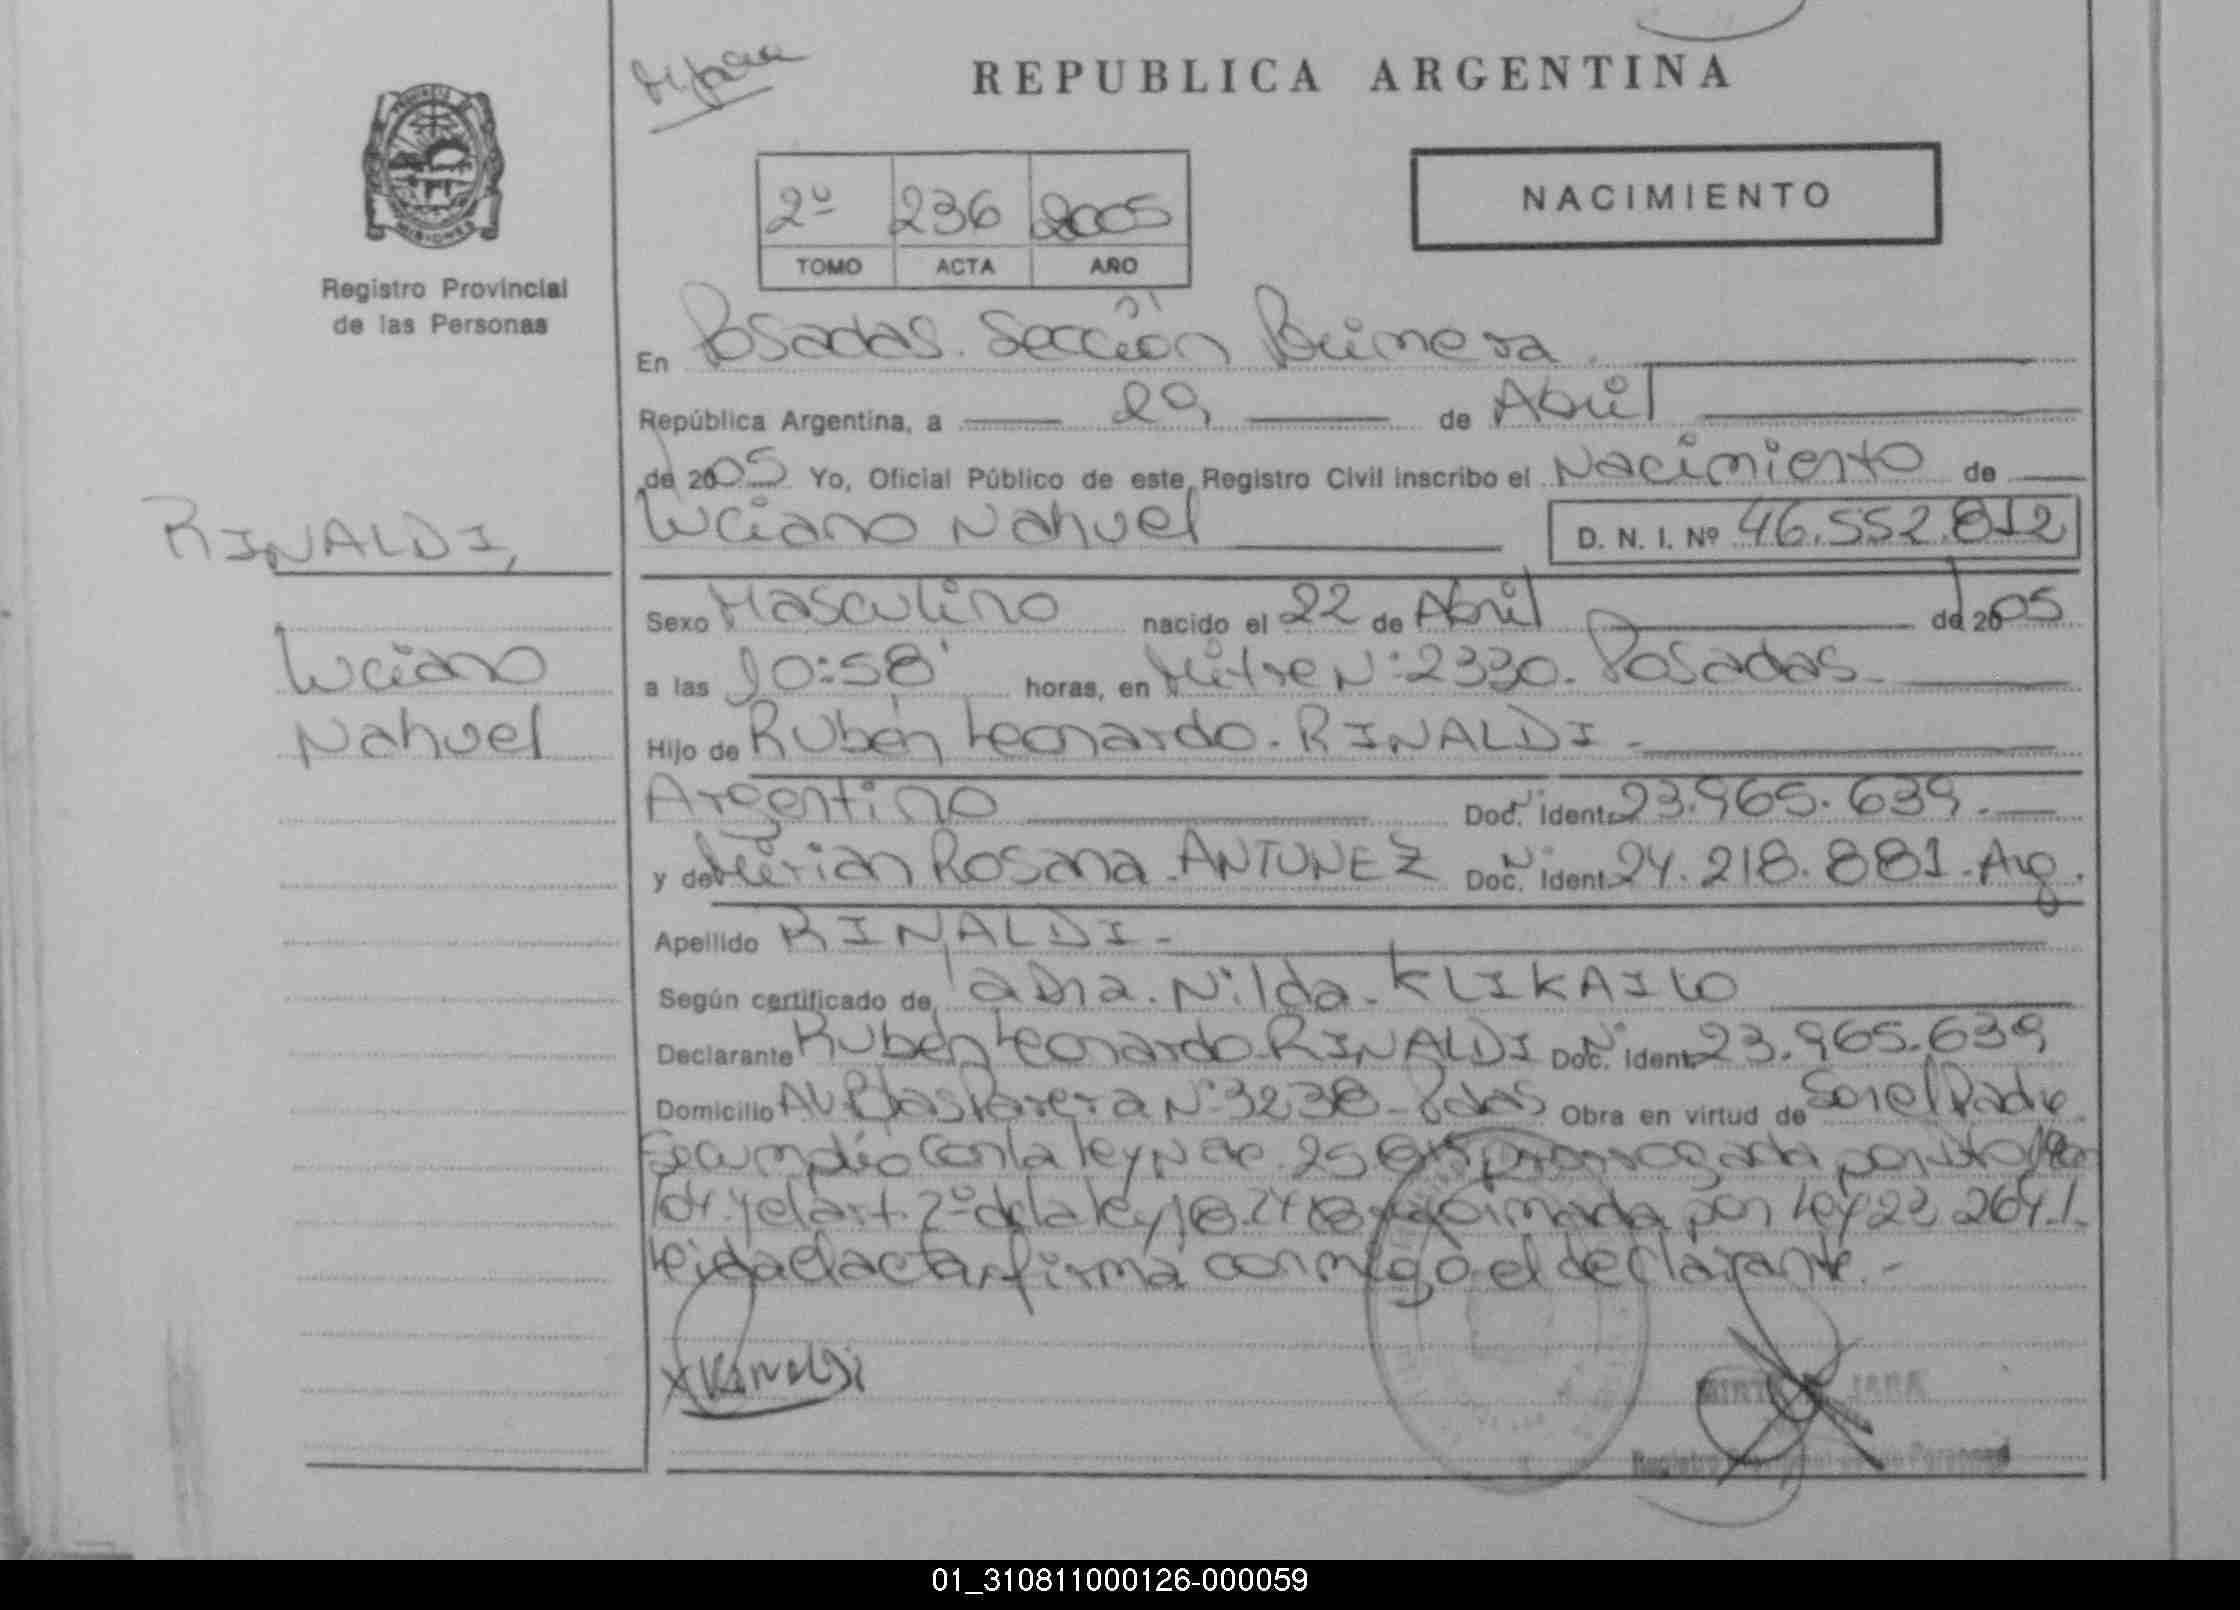 REPUBLICA ARGENTINA
PROVINCIA DE
MISIONES
Registro Provincial
de las Personas
NACIMIENTO
2º 236 2005
TOMO ACTA AÑO
En Posadas. Sección Primera.
República Argentina, a 29 de Abril
de 2005 Yo, Oficial Público de este Registro Civil inscribo el Nacimiento de
Luciano Nahuel D. N. I. Nº 46.552.812
RINALDI,
Luciano
Nahuel
Sexo Masculino nacido el 22 de Abril de 2005
a las 10:58' horas, en Mitre Nº 2330. Posadas
Hijo de Rubén Leonardo. RINALDI -
Argentino Doc. Ident. Nº 23.965.639.
y de Mirian Rosana. ANTUNEZ Doc. Ident. Nº 24.218.881. Arg.
Apellido RINALDI -
Según certificado de, la Dra. Nilda. KLIKAILO
Declarante Rubén Leonardo RINALDI Doc. Ident. Nº 23.965.639
Domicilio AV Blas Parera Nº 3238 - Pdas Obra en virtud de Ser el Padre
Se cumplió con la ley prorrogada por
04 y el art. 2º de la ley 18.248 reformada por Ley 22.264.
Leida el acta, firma conmigo el declarante. -
X Rinaldi
MIRTA JARA
Registro Personas
01_310811000126-000059